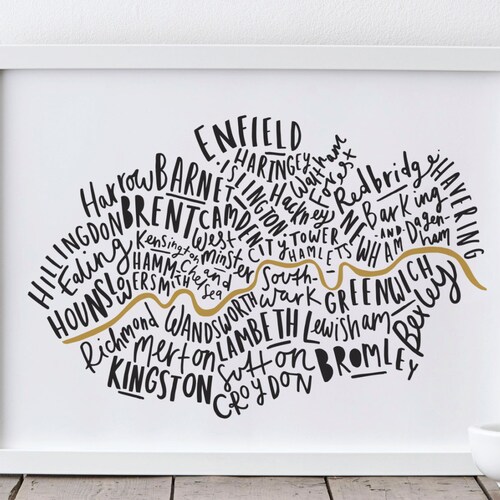 ENFIELD
HARINGEY
Waltham
Forest
Harrow
BARNET
ISLINGTON
Hackney
Redbridge
HAVERING
HILLINGDON
BRENT
CAMDEN
Barking
AND
Dagen-
ham
Ealing
Kensington
and
Chelsea
West
minster
CITY
TOWER
HAMLETS
NEWHAM
HOUNSLOW
HAMM-
ERSMITH
South-
wark
GREENWICH
Bexley
Richmond
WANDSWORTH
LAMBETH
Lewisham
Merton
Sutton
BROMLEY
KINGSTON
CROYDON